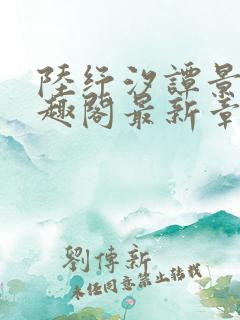 陸紓汐譚景
趣閣最新章
劉傳新
未经同意禁止转载